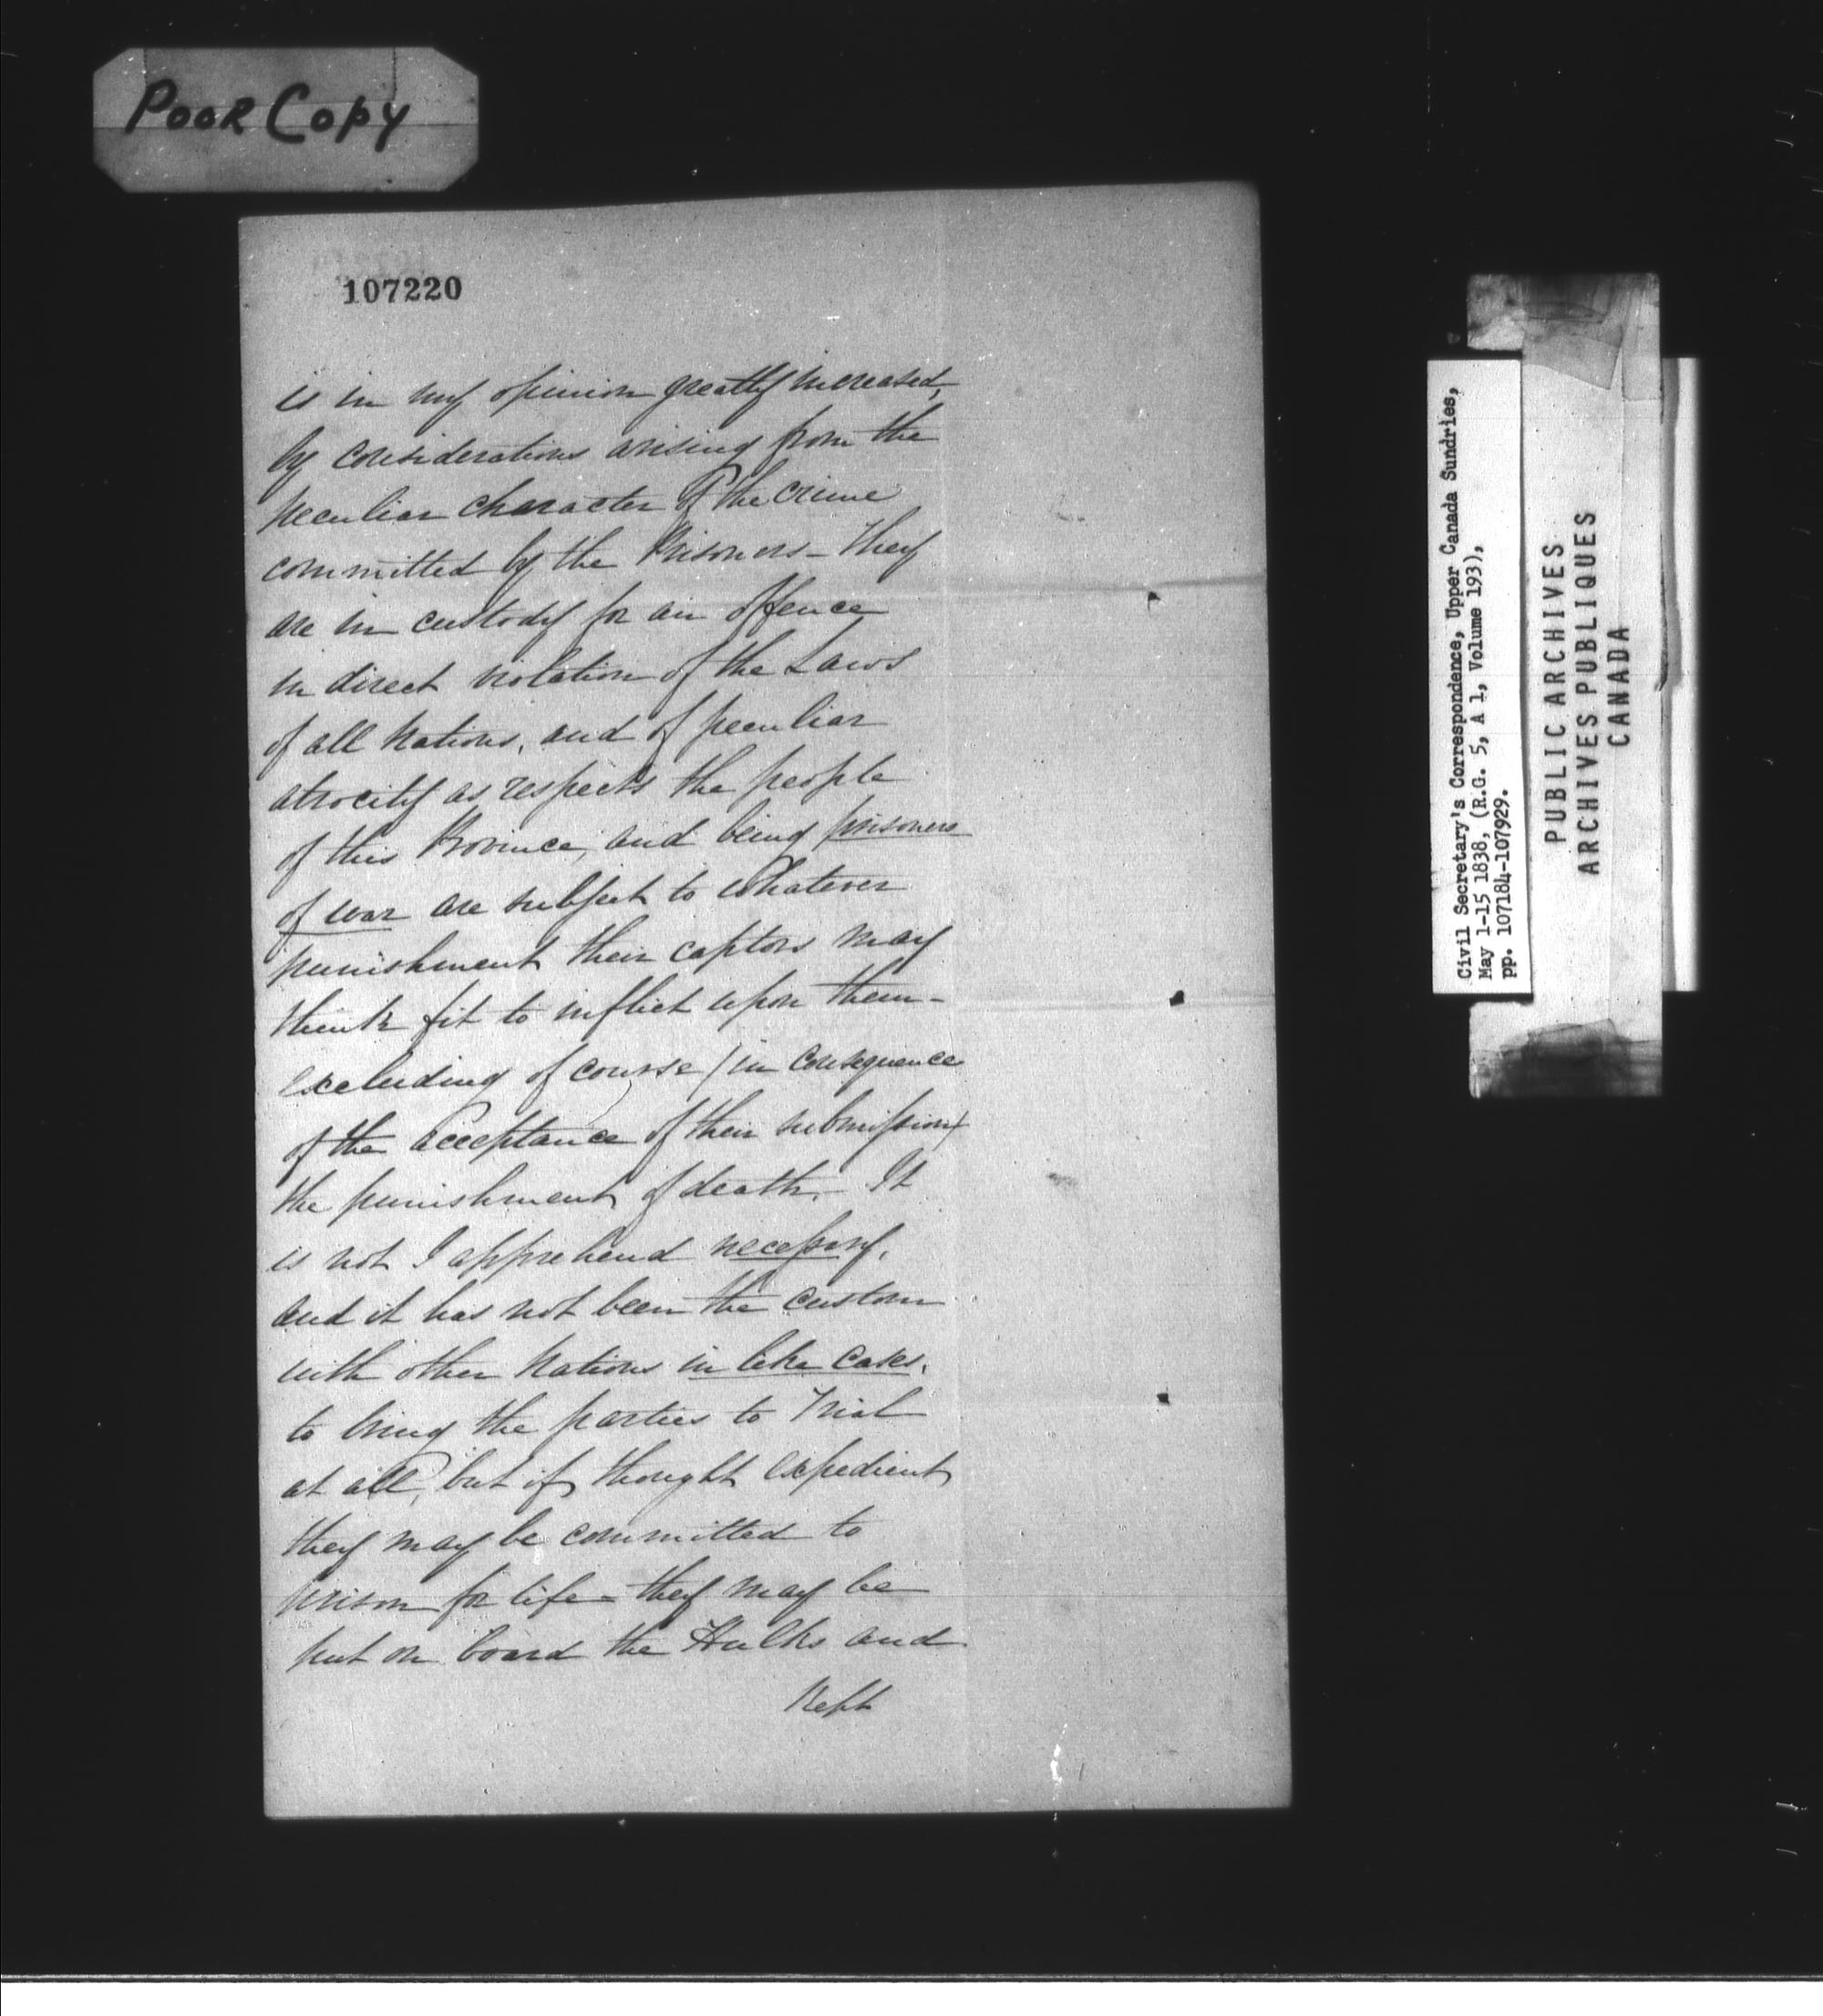 Poor Copy
107220
is in my opinion greatly increased,
by considerations arising from the
peculiar character of the crime
committed by the Prisoners – They
are in custody for an offence
in direct violation of the Laws
of all Nations, and of peculiar
atrocity as respects the people
of this Province, and being prisoners
of war are subject to whatever
punishment their captors may
think fit to inflict upon them –
excluding of course (in consequence
of the acceptance of their submission)
the punishment of death. – It
is not I apprehend necessary,
and it has not been the custom
with other Nations in like cases,
to bring the parties to Trial
at all, but if thought expedient
they may be committed to
prison for life – they may be
put on board the Hulks and
Kept
Civil Secretary's Correspondence, Upper Canada Sundries,
May 1-15 1838, (R.G. 5, A 1, Volume 193),
pp. 107184-107929.
PUBLIC ARCHIVES
ARCHIVES PUBLIQUES
CANADA